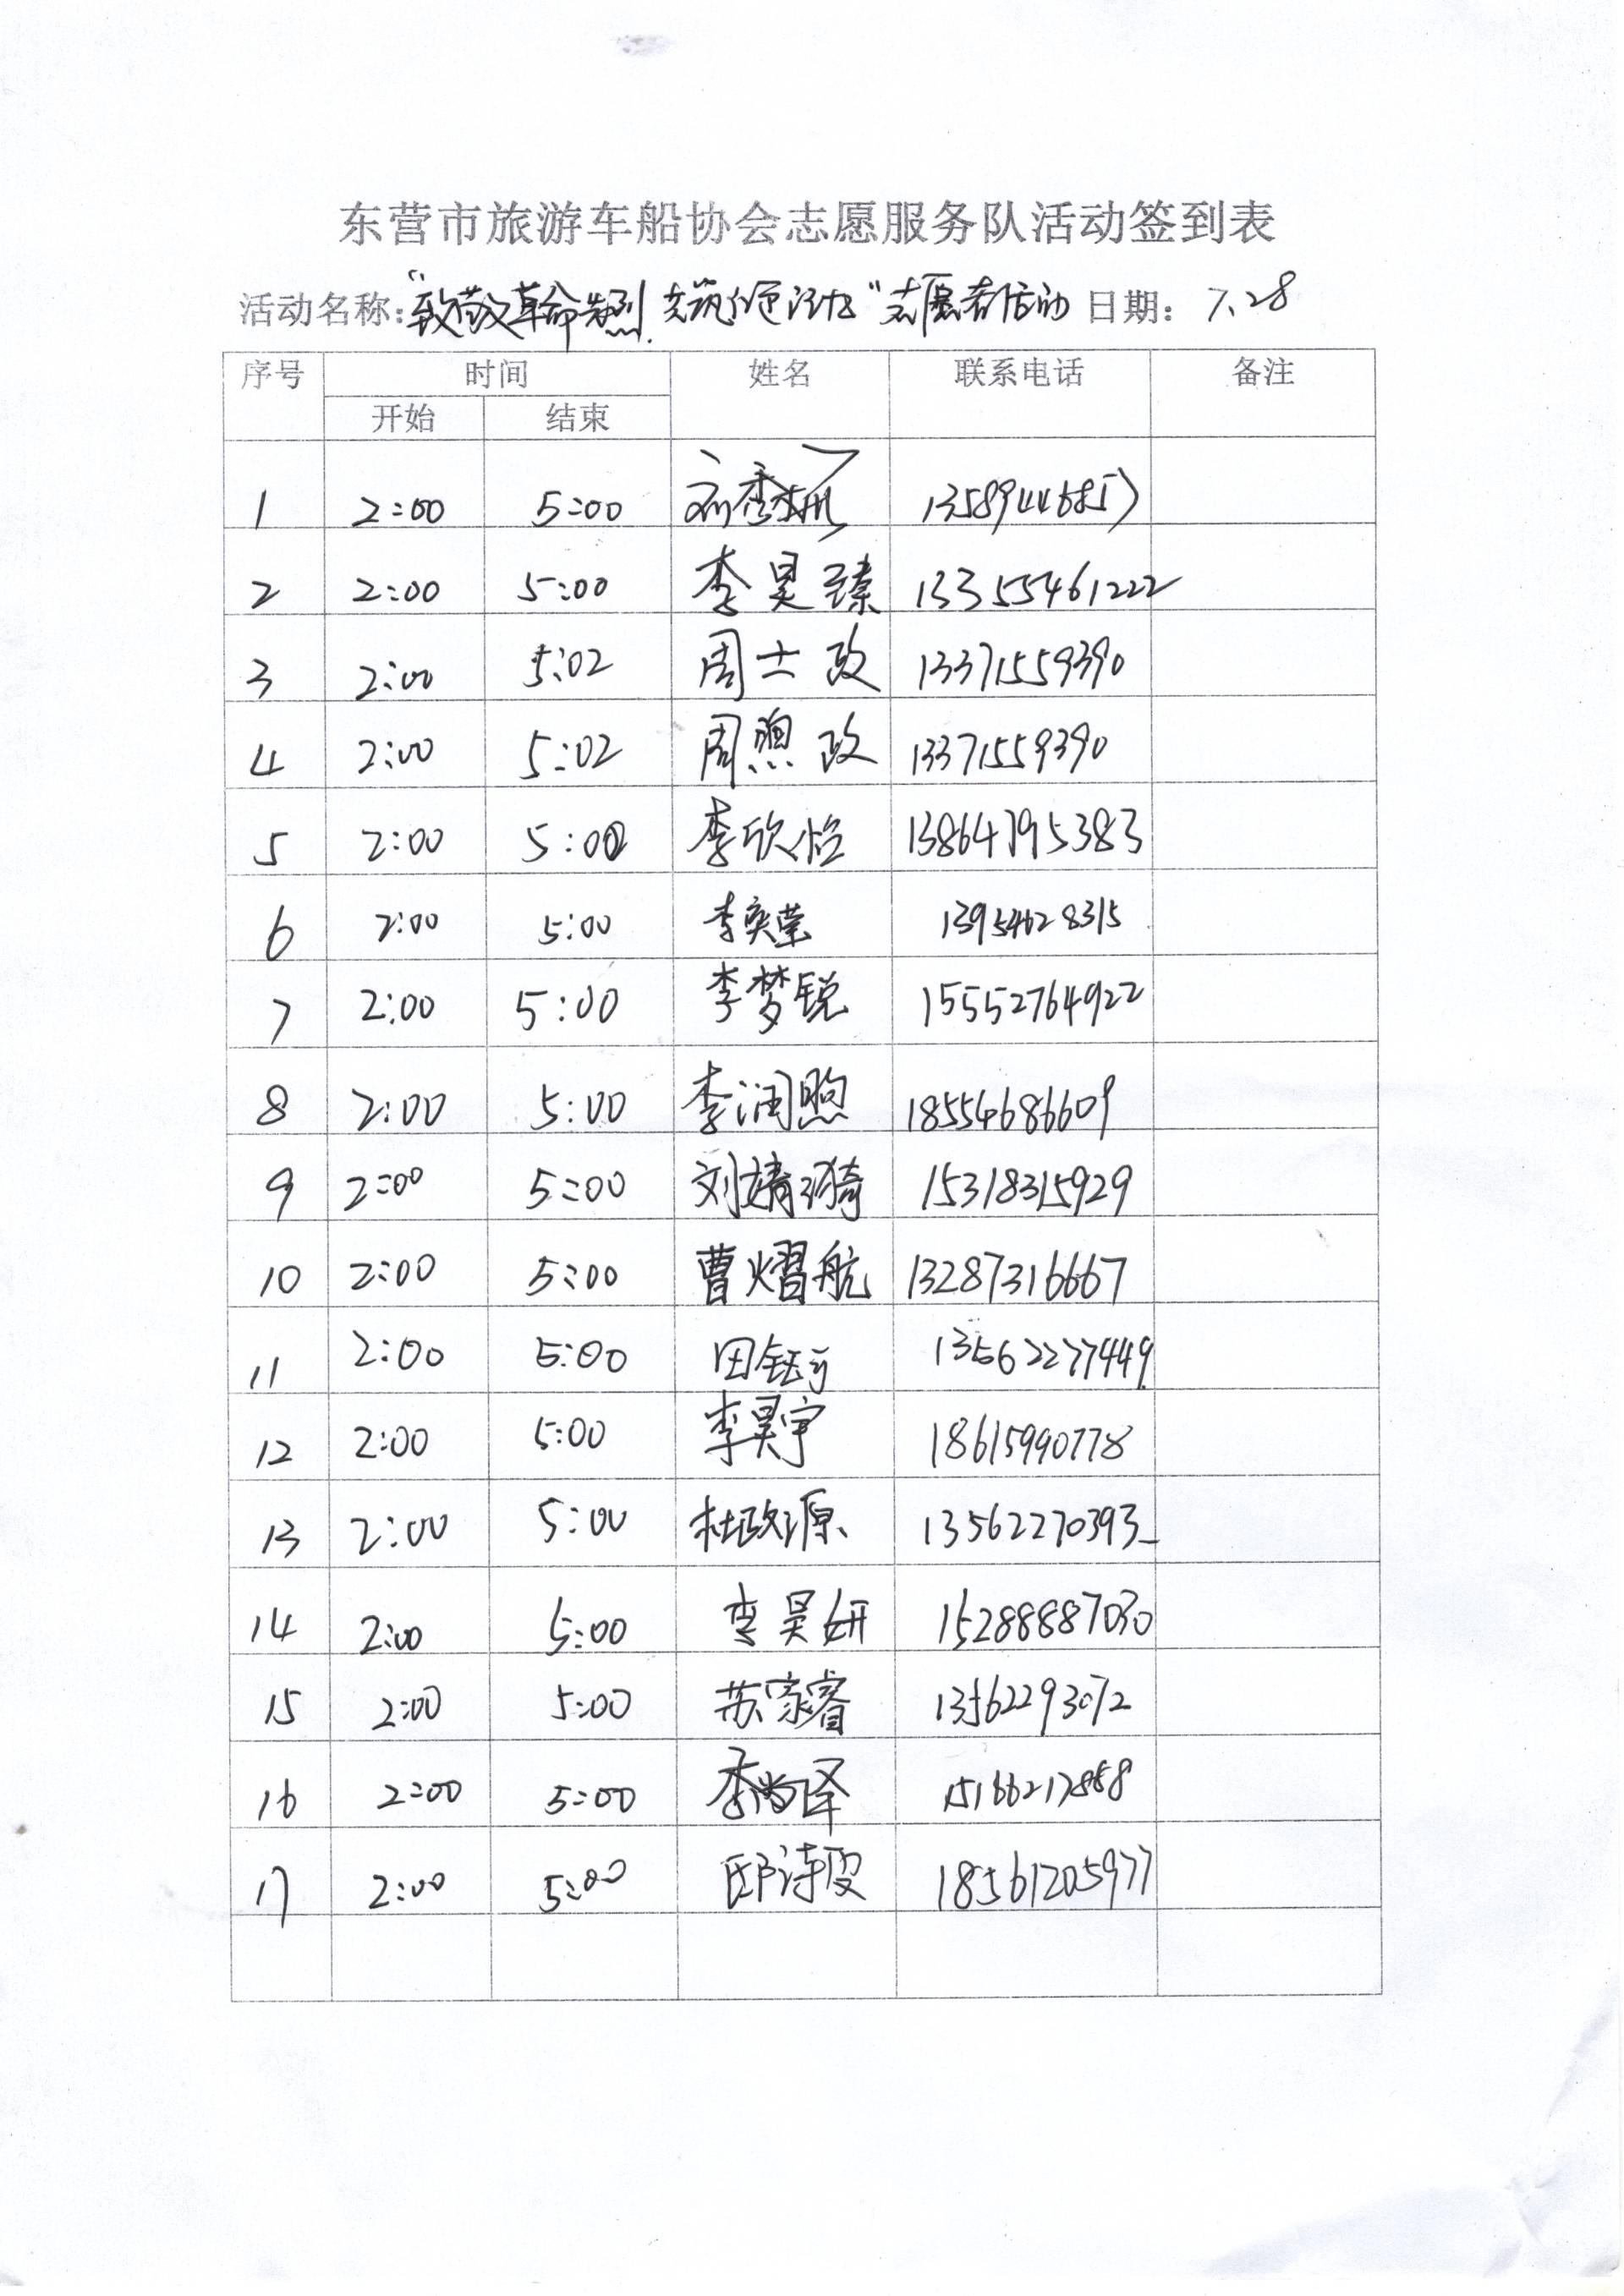 东营市旅游车船协会志愿服务队活动签到表
活动名称:“致敬革命先烈 志愿者活动 日期: 7.28
序号 时间 姓名 联系电话 备注
开始 结束
1 2:00 5:00 刘秀 13589446857
2 2:00 5:00 李昊臻 13355461222
3 2:00 5:02 周士政 13371559390
4 2:00 5:02 周煦政 13371559390
5 2:00 5:00 李欣怡 13864795383
6 2:00 5:00 李奕莹 13954628315
7 2:00 5:00 李梦锐 15552764922
8 2:00 5:00 李润煦 18554686609
9 2:00 5:00 刘婧漪 15318315929
10 2:00 5:00 曹熠航 13287316667
11 2:00 5:00 田钰 13562277449
12 2:00 5:00 李昊宇 18615990778
13 2:00 5:00 杜政源 13562270393
14 2:00 5:00 李昊妍 15288887030
15 2:00 5:00 苏家睿 13562293072
16 2:00 5:00 李尚泽 15166217888
17 2:00 5:00 邸诗雯 18561205977